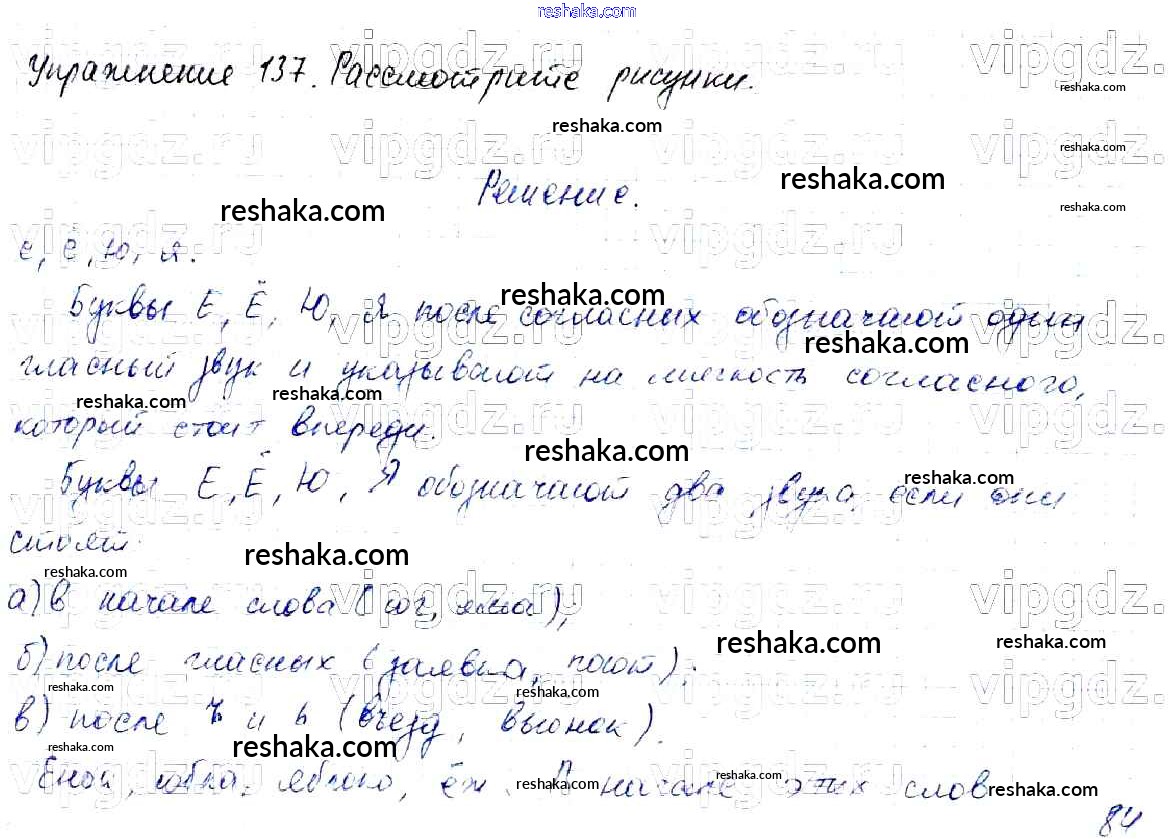 reshaka.com
Упражнение 137. Рассмотрите рисунки.
Решение.
е, ё, ю, я.
Буквы Е, Ё, Ю, Я после согласных обозначают один
гласный звук и указывают на мягкость согласного,
который стоит впереди.
Буквы Е, Ё, Ю, Я обозначают два звука, если они
стоят:
а) в начале слова (юг, яма);
б) после гласных (заявка, поют);
в) после ъ и ь (въезд, вьюнок).
Енот, юбка, яблоко, ёж. В начале этих слов
84